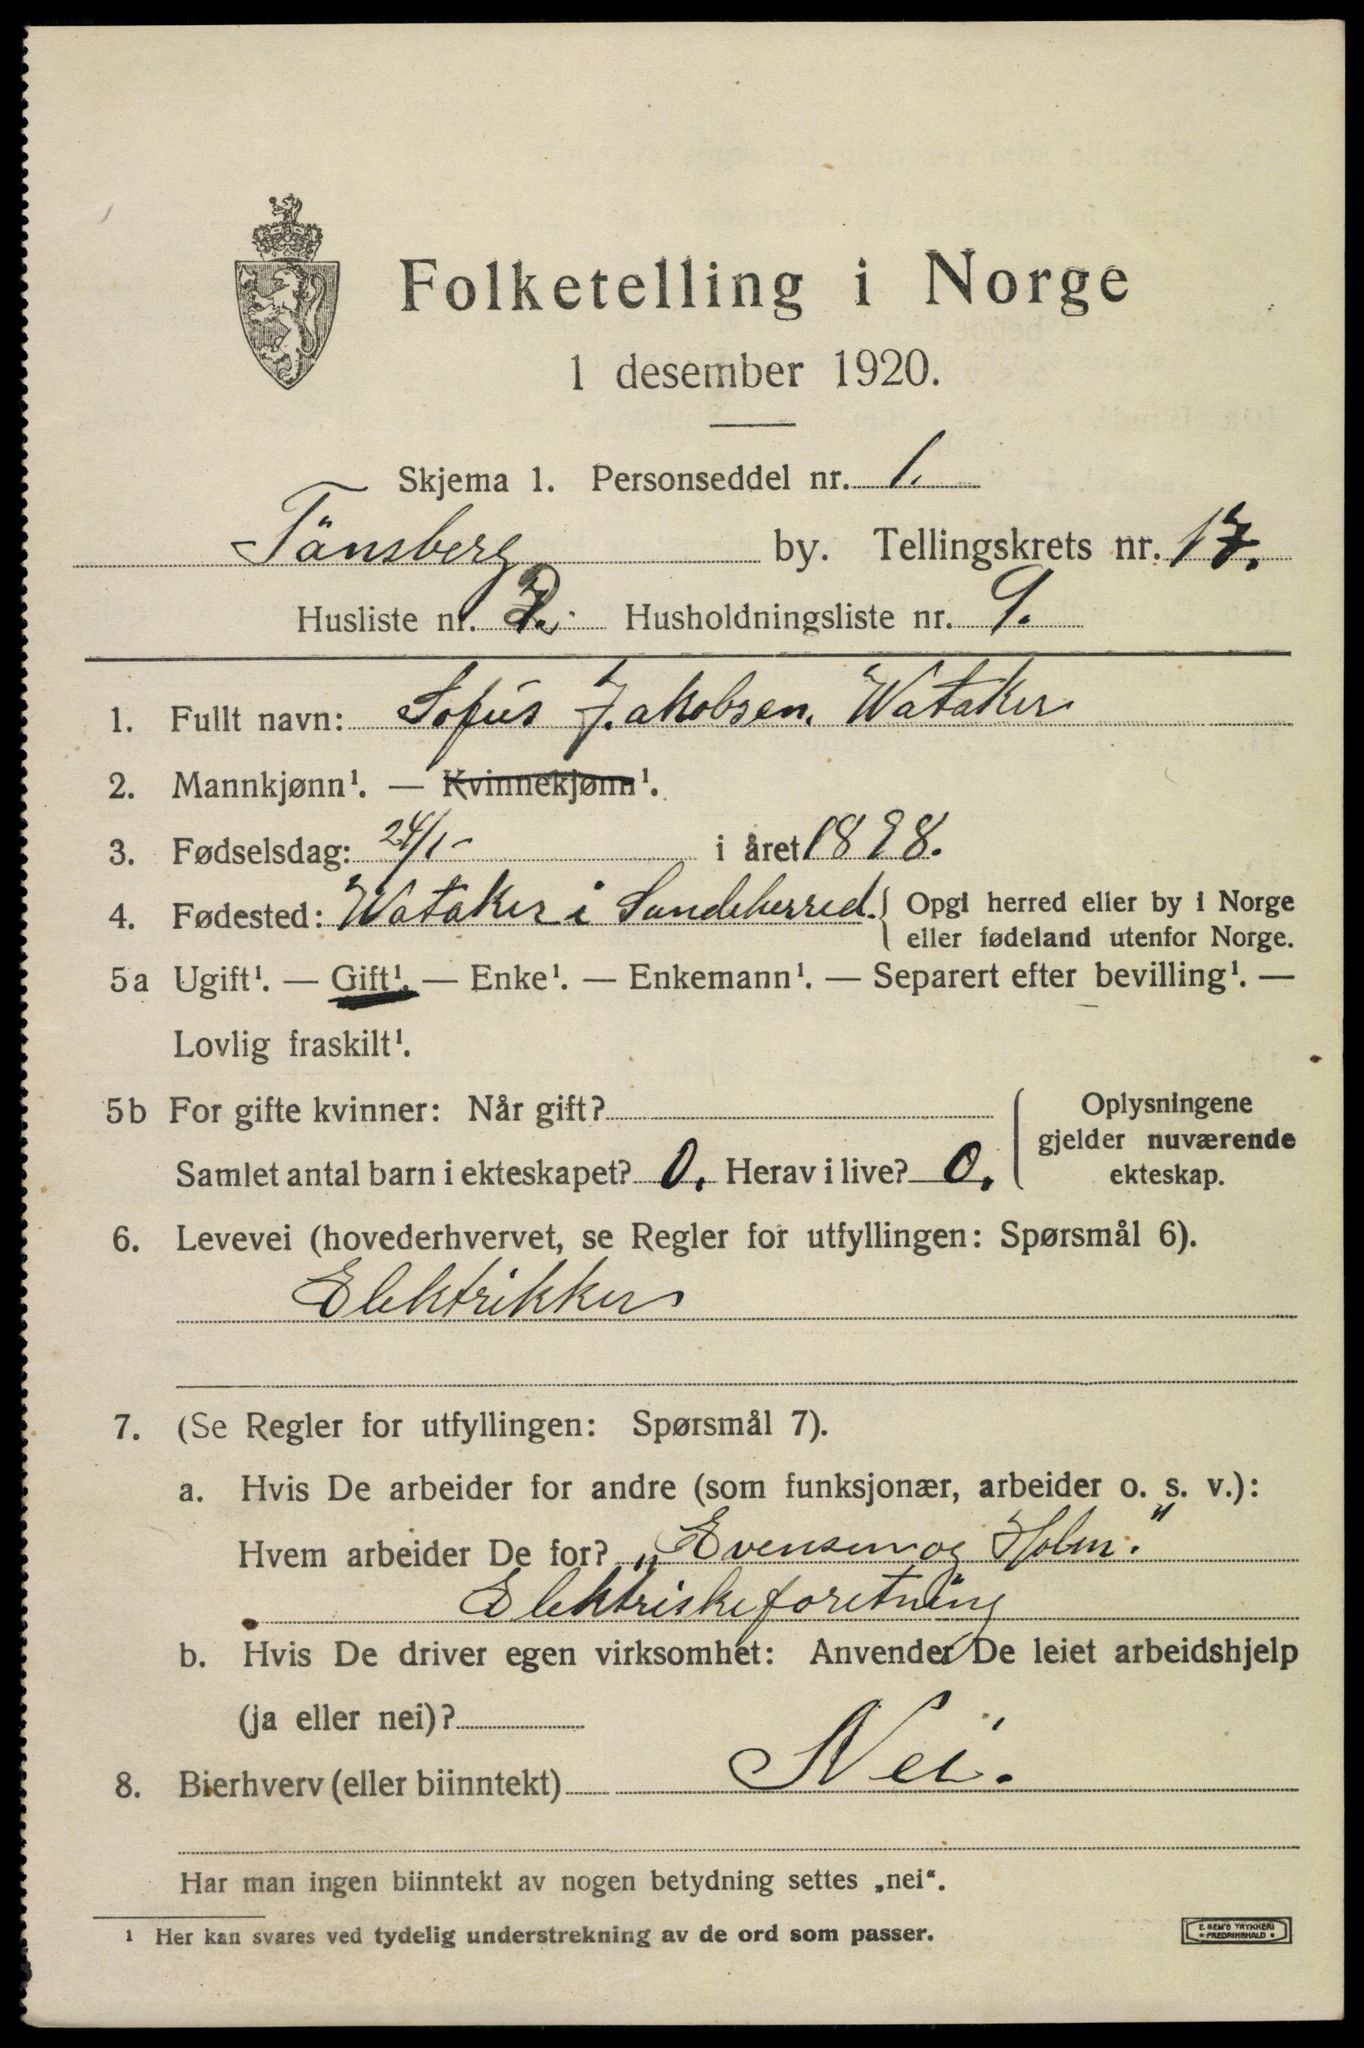 Folketelling i Norge
1 desember 1920.
Skjema 1. Personseddel nr. 1.
Tönsberg by. Tellingskrets nr. 17.
Husliste nr. Husholdningsliste nr. 9.
1. Fullt navn: Sofus Jakobsen Wataker
2. Mannkjønn¹. — Kvinnekjønn¹.
3. Fødselsdag: 24/1- i året 1898.
4. Fødested: Wataker i Sandeherred. Opgi herred eller by i Norge
eller fødeland utenfor Norge.
5a Ugift¹. — Gift¹. — Enke¹. — Enkemann¹. — Separert efter bevilling¹. —
Lovlig fraskilt¹.
5b For gifte kvinner: Når gift? Oplysningene
gjelder nuværende
Samlet antal barn i ekteskapet? 0. Herav i live? 0. ekteskap.
6. Levevei (hovederhvervet, se Regler for utfyllingen: Spørsmål 6).
Elektrikker
7. (Se Regler for utfyllingen: Spørsmål 7).
a. Hvis De arbeider for andre (som funksjonær, arbeider o. s. v.):
Hvem arbeider De for? „Evensen og Holm."
Elektriskeforetning
b. Hvis De driver egen virksomhet: Anvender De leiet arbeidshjelp
(ja eller nei)?
8. Bierhverv (eller biinntekt) Nei.
Har man ingen biinntekt av nogen betydning settes „nei“.
¹ Her kan svares ved tydelig understrekning av de ord som passer.
E. SEM'S TRYKKERI
FREDRIKSHALD